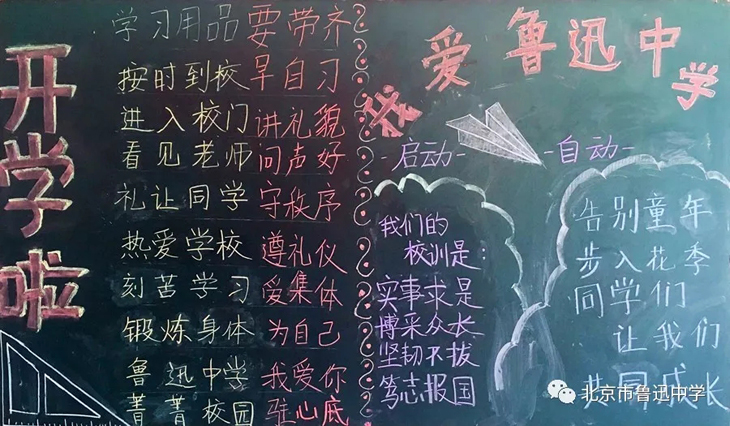 开学啦
学习用品要带齐
按时到校早自习
进入校门讲礼貌
看见老师问声好
礼让同学守秩序
热爱学校遵礼仪
刻苦学习爱集体
锻炼身体为自己
鲁迅中学我爱你
菁菁校园驻心底
我爱鲁迅中学
-启动-
-自动-
我们的
校训是：
实事求是
博采众长
坚韧不拔
笃志报国
告别童年
步入花季
同学们
让我们
共同成长
北京市鲁迅中学